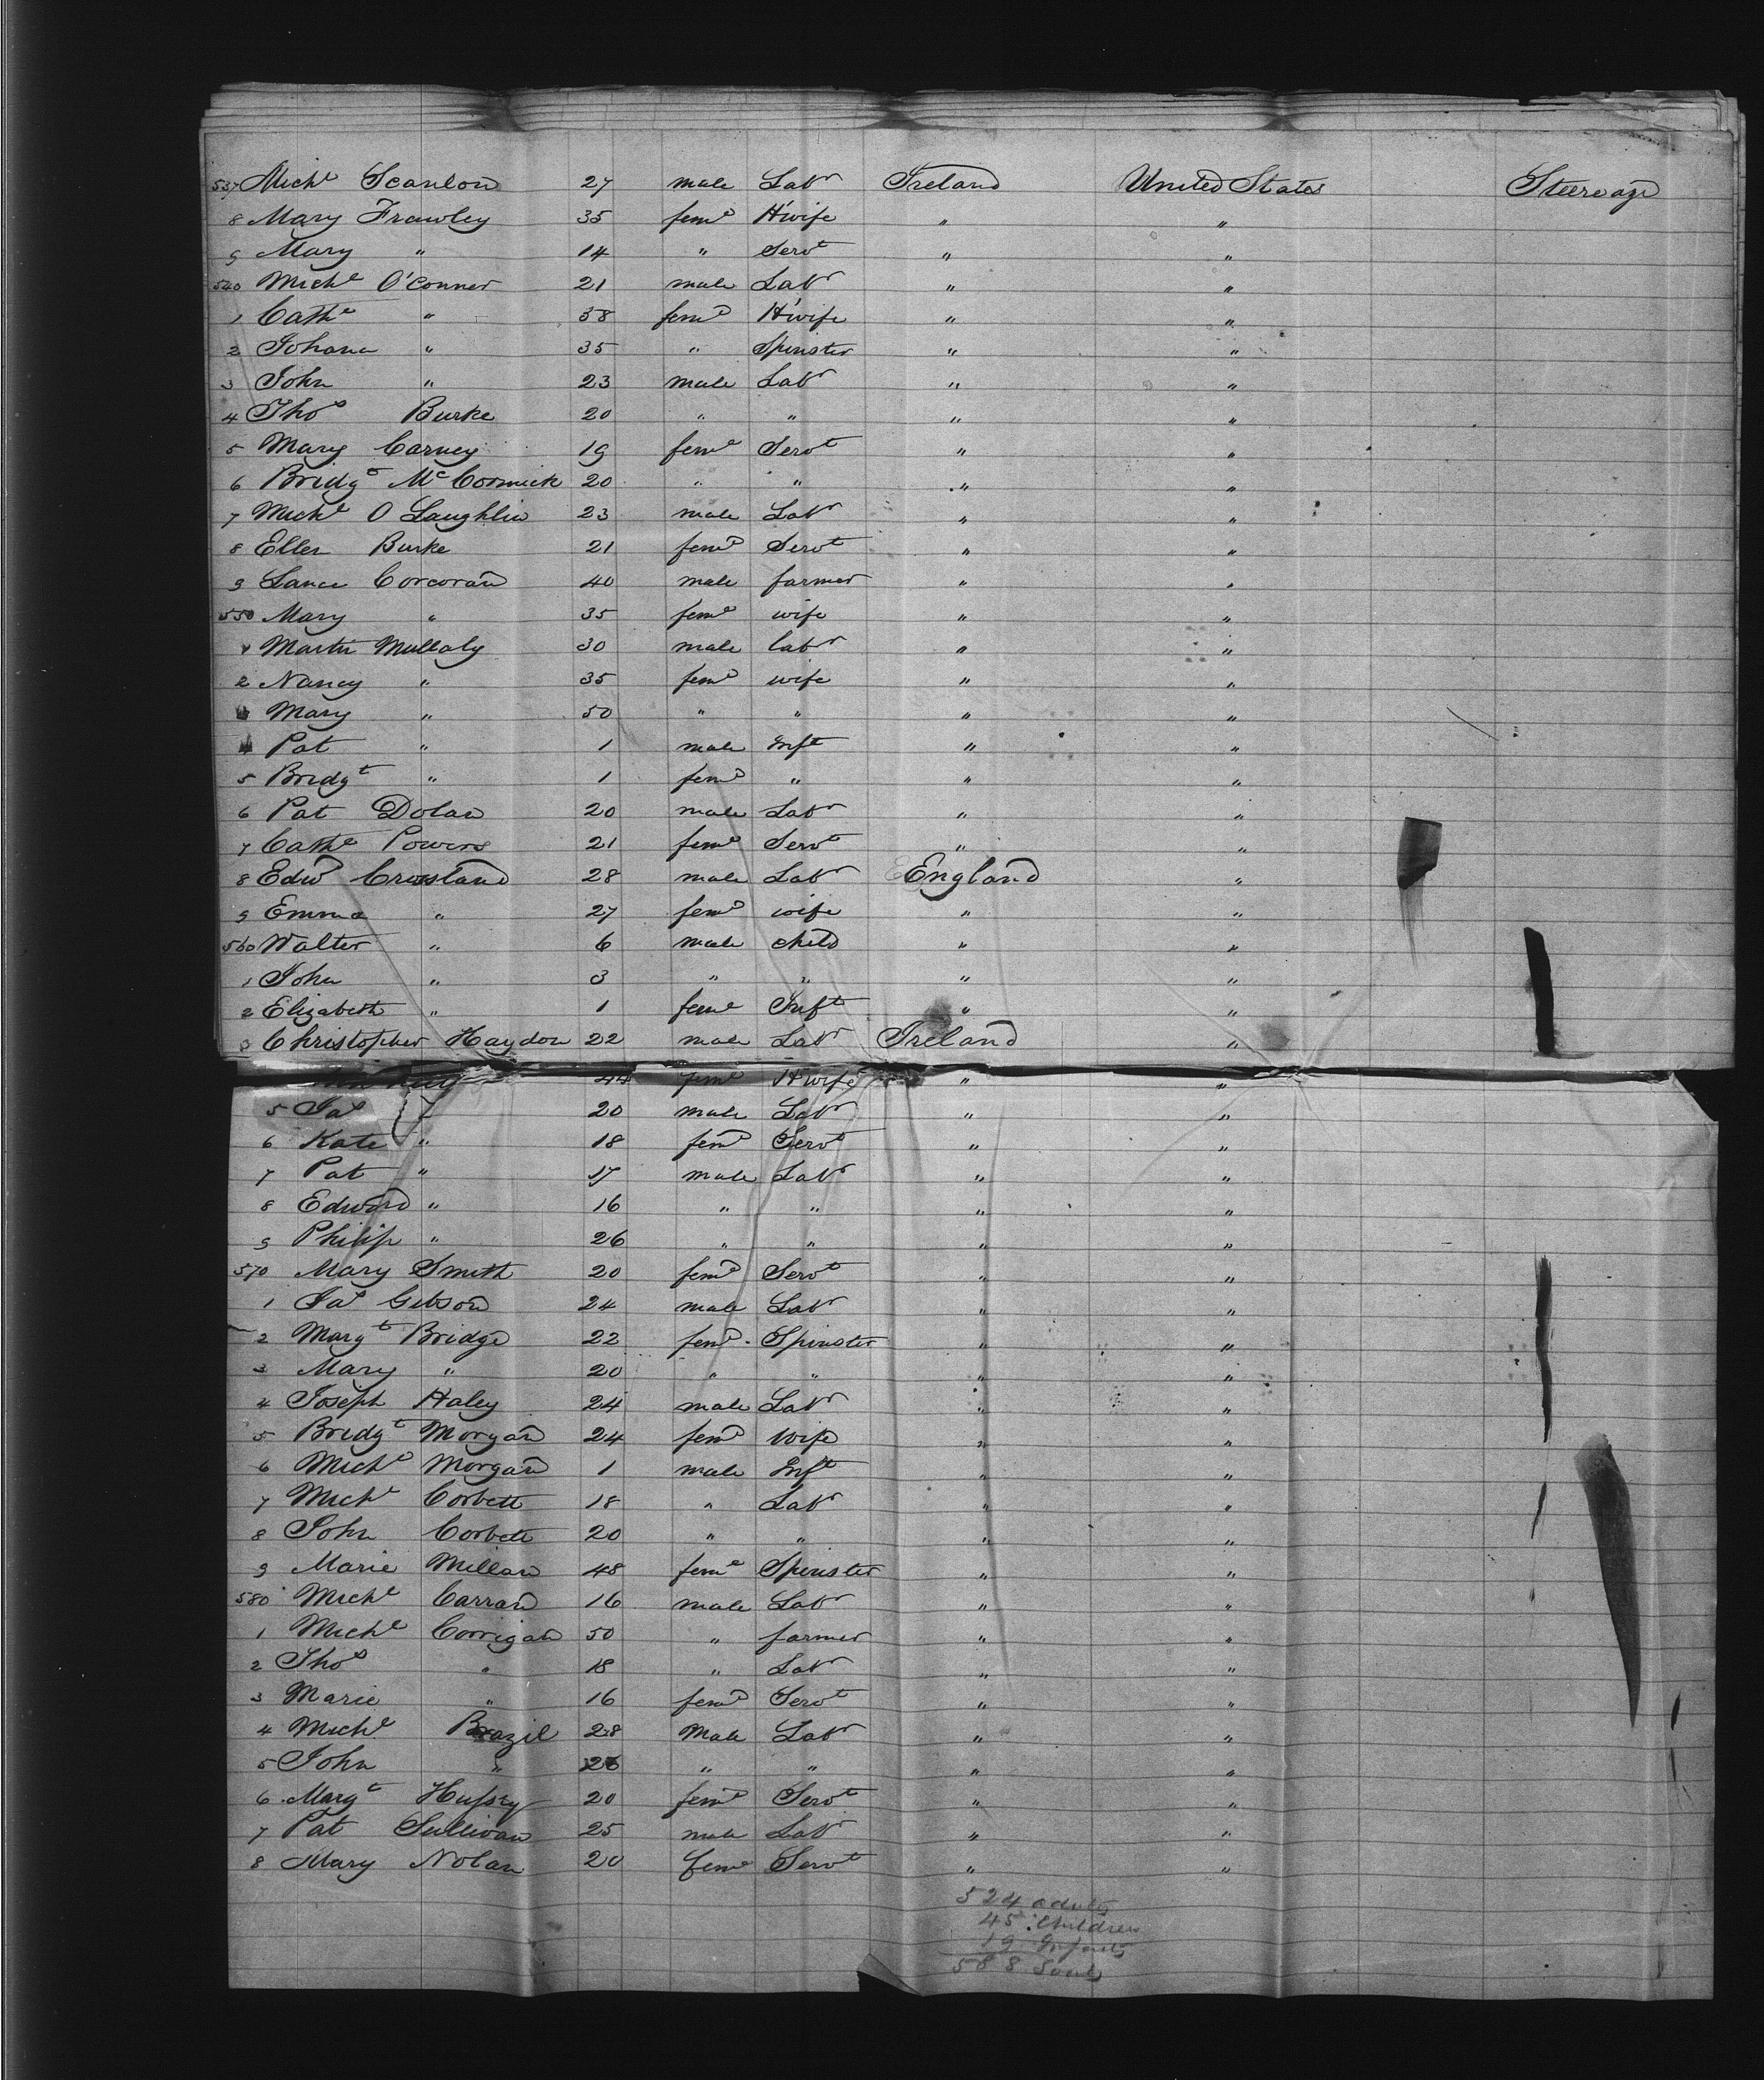 537 Michl Scanlon 27 male Labr Ireland United States Steerage
8 Mary Frawley 35 feme H'wife " "
9 Mary " 14 " Servt " "
540 Michl O'Conner 21 male Labr " "
1 Cathe " 38 feme H'wife " "
2 Johana " 35 " Spinster " "
3 John " 23 male Labr " "
4 Thos Burke 20 " " " "
5 Mary Carney 19 feme Servt " "
6 Bridgt McCormick 20 " " " "
7 Michl O Laughlin 23 male Labr " "
8 Ellen Burke 21 feme Servt " "
9 Lance Corcoran 40 male farmer " "
550 Mary " 35 feme wife " "
1 Martin Mullaly 30 male labr " "
2 Nancy " 35 feme wife " "
Mary " 50 " " " "
4 Pat " 1 male Inft " "
5 Bridgt " 1 feme " " "
6 Pat Dolan 20 male Labr " "
7 Cathe Powers 21 feme Servt " "
8 Edwd Crossland 28 male Labr England "
9 Emma " 27 feme wife " "
560 Walter " 6 male child " "
1 John " 3 " " " "
2 Elizabeth " 1 feme Inft " "
3 Christopher Haydon 22 male Labr Ireland "
44 feme H'wife " "
5 Jas " 20 male Labr " "
6 Kate " 18 feme Servt " "
7 Pat " 17 male Labr " "
8 Edward " 16 " " " "
9 Philip " 26 " " " "
570 Mary Smith 20 feme Servt " "
1 Jas Gibson 24 male Labr " "
2 Margt Bridge 22 feme Spinster " "
3 Mary " 20 " " " "
4 Joseph Haley 24 male Labr " "
5 Bridgt Morgan 24 feme Wife " "
6 Michl Morgan 1 male Inft " "
7 Michl Corbett 18 " Labr " "
8 John Corbett 20 " " " "
9 Marie Millan 48 feme Spinster " "
580 Michl Carran 16 male Labr " "
1 Michl Corrigan 50 " farmer " "
2 Thos " 18 " Labr " "
3 Marie " 16 feme Servt " "
4 Michl Brazil 28 Male Labr " "
5 John " 26 " " " "
6 Margt Hussey 20 feme Servt " "
7 Pat Sullivan 25 male Labr " "
8 Mary Nolan 20 feme Servt " "
524 adults
45 Children
19 Infants
588 Souls